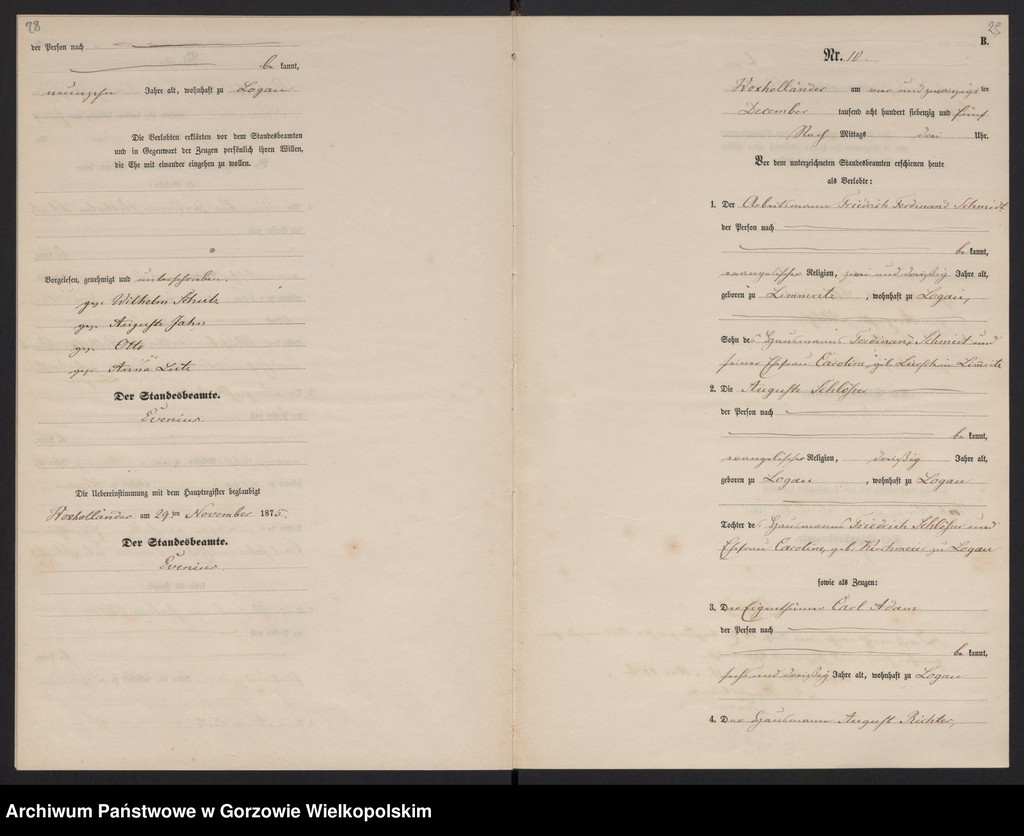 28
der Person nach
be kannt,
neunzehn Jahre alt, wohnhaft zu Logau
Die Verlobten erklärten vor dem Standesbeamten
und in Gegenwart der Zeugen persönlich ihren Willen,
die Ehe mit einander eingehen zu wollen.
Vorgelesen, genehmigt und unterschrieben.
gez. Wilhelm Schulz
gez. Auguste Jahn
gez. Otto
gez. Anna
Der Standesbeamte.
Evenius.
Die Uebereinstimmung mit dem Hauptregister beglaubigt
Woxholländer am 29ten November 1875.
Der Standesbeamte.
Evenius.
29
B.
Nr. 10
Woxholländer am vier und zwanzigs ten
December tausend acht hundert siebenzig und fünf
Nach Mittags drei Uhr.
Vor dem unterzeichneten Standesbeamten erschienen heute
als Verlobte:
1. Der Arbeitsmann Friedrich Ferdinand Schmidt
der Person nach
be kannt,
evangelischer Religion, zwei und dreißig Jahre alt,
geboren zu Limmritz, wohnhaft zu Logau,
Sohn des Hausmanns Ferdinand Schmidt und
seiner Ehefrau Caroline, geb. in Limritz
2. Die Auguste Schlösser
der Person nach
be kannt,
evangelischer Religion, dreißig Jahre alt,
geboren zu Logau, wohnhaft zu Logau
Tochter des Hausmanns Friedrich Schlösser und
Ehefrau Caroline, geb. zu Logau
sowie als Zeugen:
3. Der Eigenthümer Carl Adam
der Person nach
be kannt,
sechs und dreißig Jahre alt, wohnhaft zu Logau
4. Der Hausmann August Richter,
Archiwum Państwowe w Gorzowie Wielkopolskim